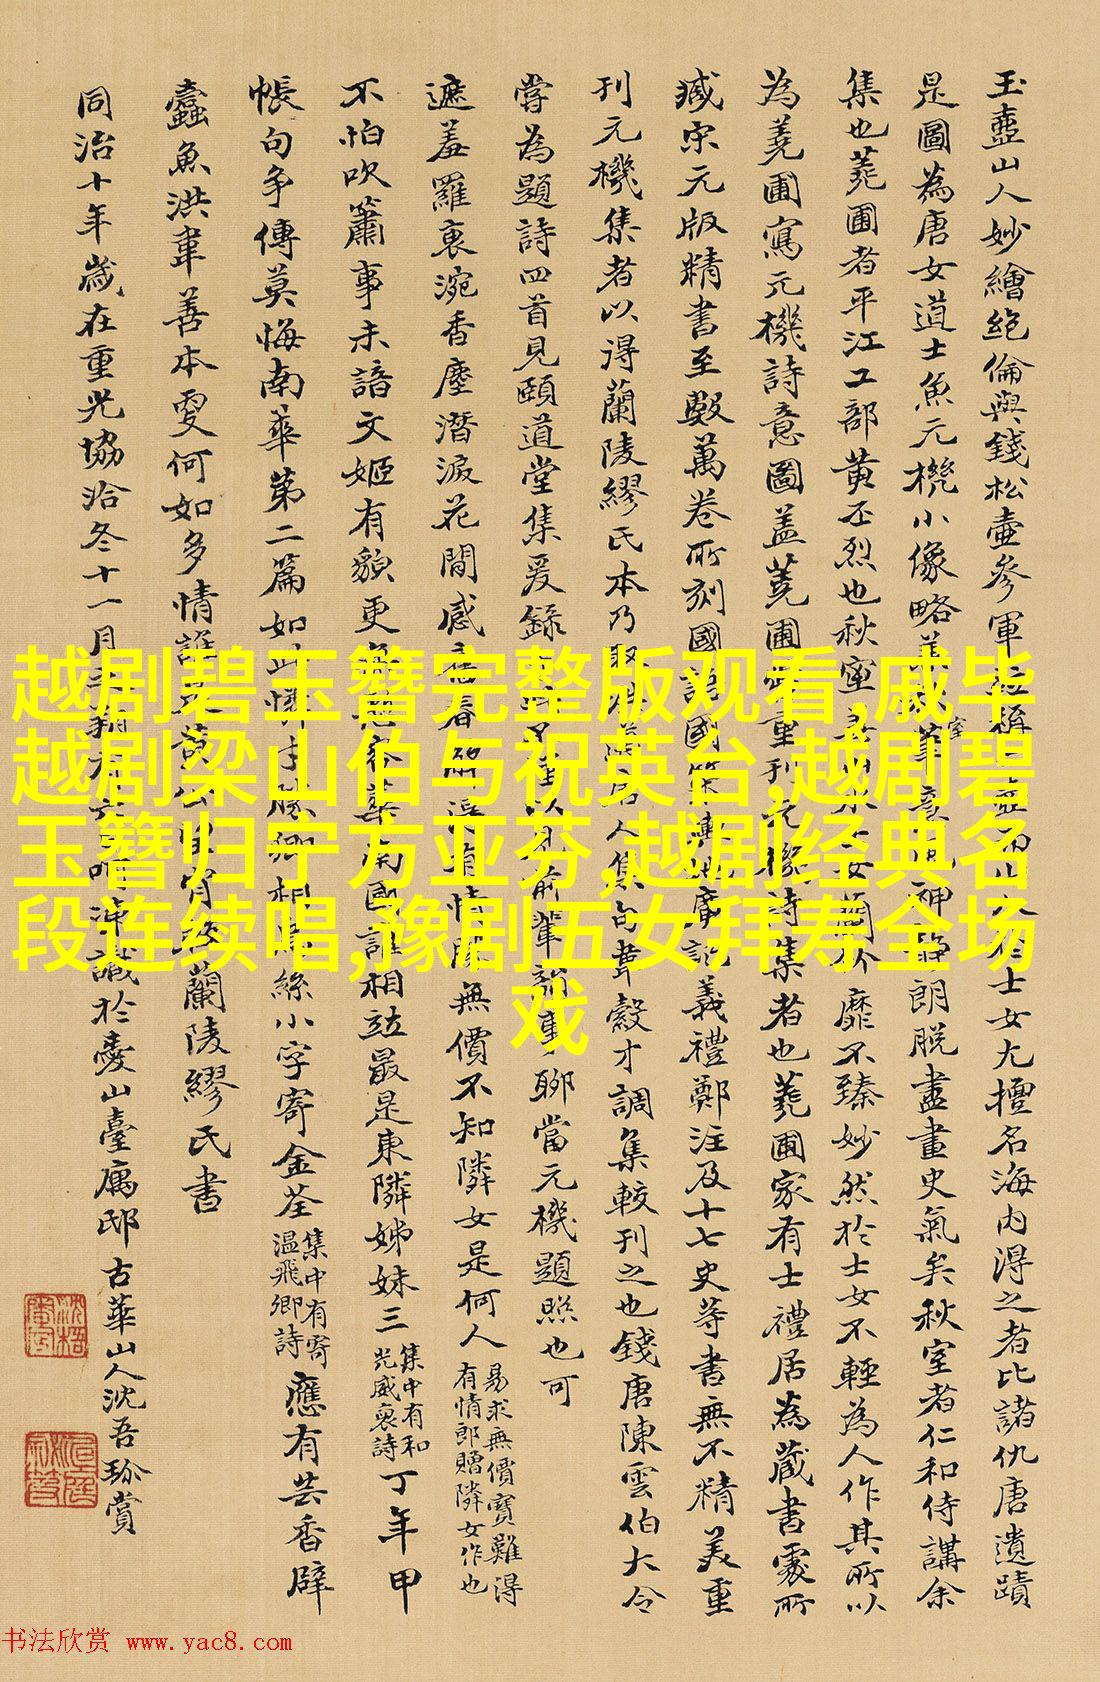 玉壼山人妙繪絕倫與錢松壷參軍並稱二壺而山人仕士女尤擅名海内得之者比諸仇唐遺蹟
是圖為唐女道士魚元機小像略兼秋室筆意風神靜朗脱盡畫史氣矣秋室者仁和侍講余
集也蕘圃者平江工部黄丕烈也秋室士女靡不臻妙然於士女不輕為人作其所以
為蕘圃寫元機詩意圖盖蕘圃嘗重刊元機詩集者也蕘圃家有士禮居為藏書處所
臧宋元版精書至數萬卷所刻國語國策輿地廣記義禮鄭注及十七史等書無不精美重
刊元機集者以得蘭陵繆氏本乃取唐人集句韋縠才調集較刊之也錢唐陳雲伯大令
嘗為題詩四首見頤道堂集爰錄以見前輩韻事聊當元機題照也可
遮羞羅裏涴香塵潛淚花間感舊春有情無價不知隣女是何人易求無價寶難得有情郎贈隣女作也
不怕吹簫事未諳文姬有貌更無慙南國誰相竝最是東隣姊妹三集中有和光威裒詩丁年甲
帳句争傳莫悔南華第二篇如此憐才勝絲小字寄金荃集中有寄温飛卿詩應有芸香辟
蠹魚洪韋善本叓何如多情誰黄蘭陵繆氏書
同治十年歲在重光協洽冬十一月識於臺寓邸古華山人沈吾珎賞
越剧碧玉簪完整版观看,戚毕
越剧梁山伯与祝英台,越剧碧
玉簪归宁方亚芬,越剧经典名
段连续唱,豫剧五女拜寿全场
戏
书法欣赏 www.yac8.com